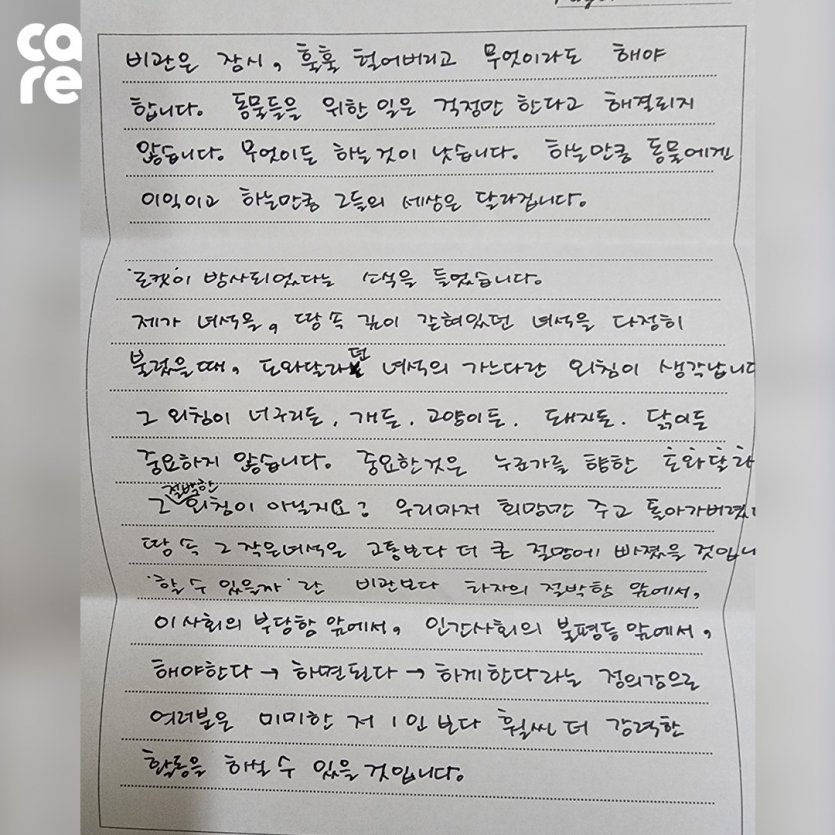 care
비관은 잠시, 훌훌 털어버리고 무엇이라도 해야
합니다. 동물들을 위한 일은 걱정만 한다고 해결되지
않습니다. 무엇이든 하는것이 낫습니다. 하는만큼 동물에겐
이익이고 하는만큼 그들의 세상은 달라집니다.
'로켓'이 방사되었다는 소식을 들었습니다.
제가 녀석을, 땅 속 깊이 갇혀있던 녀석을 다정히
불렀을 때, 도와달라던 녀석의 가느다란 외침이 생각납니다
그 외침이 너구리든, 개든, 고양이든, 돼지든, 닭이든
중요하지 않습니다. 중요한것은 누군가를 향한 도와달라
그 절박한 외침이 아닐지요? 우리마저 희망만 주고 돌아가버렸
땅 속 그 작은녀석은 고통보다 더 큰 절망에 빠졌을 것입니
'할 수 있을까'란 비관보다 타자의 절박함 앞에서,
이 사회의 부당함 앞에서, 인간사회의 불평등 앞에서,
해야한다 → 하면된다 → 하게한다라는 정의감으로
여러분은 미미한 저 1인 보다 훨씬 더 강력한
활동을 하실 수 있을 것입니다.